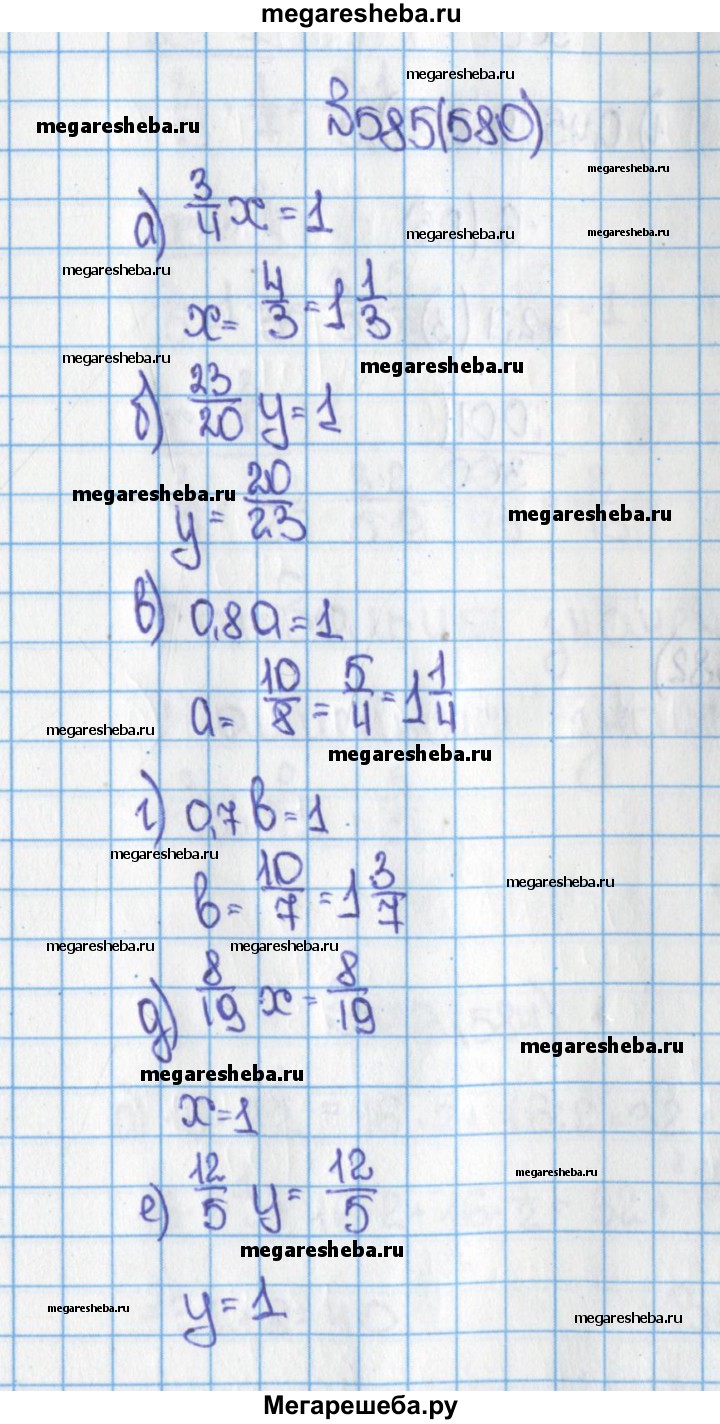 megaresheba.ru
megaresheba.ru
megaresheba.ru
№585(580)
megaresheba.ru
а) 3/4 x = 1
megaresheba.ru megaresheba.ru
megaresheba.ru
x = 4/3 = 1 1/3
megaresheba.ru
megaresheba.ru
б) 23/20 y = 1
megaresheba.ru
y = 20/23
megaresheba.ru
в) 0,8a = 1
a = 10/8 = 5/4 = 1 1/4
megaresheba.ru
megaresheba.ru
г) 0,7b = 1
megaresheba.ru
megaresheba.ru
b = 10/7 = 1 3/7
megaresheba.ru megaresheba.ru
д) 8/19 x = 8/19
megaresheba.ru
megaresheba.ru
x = 1
megaresheba.ru
е) 12/5 y = 12/5
megaresheba.ru
y = 1
megaresheba.ru
megaresheba.ru
Мегарешеба.ру